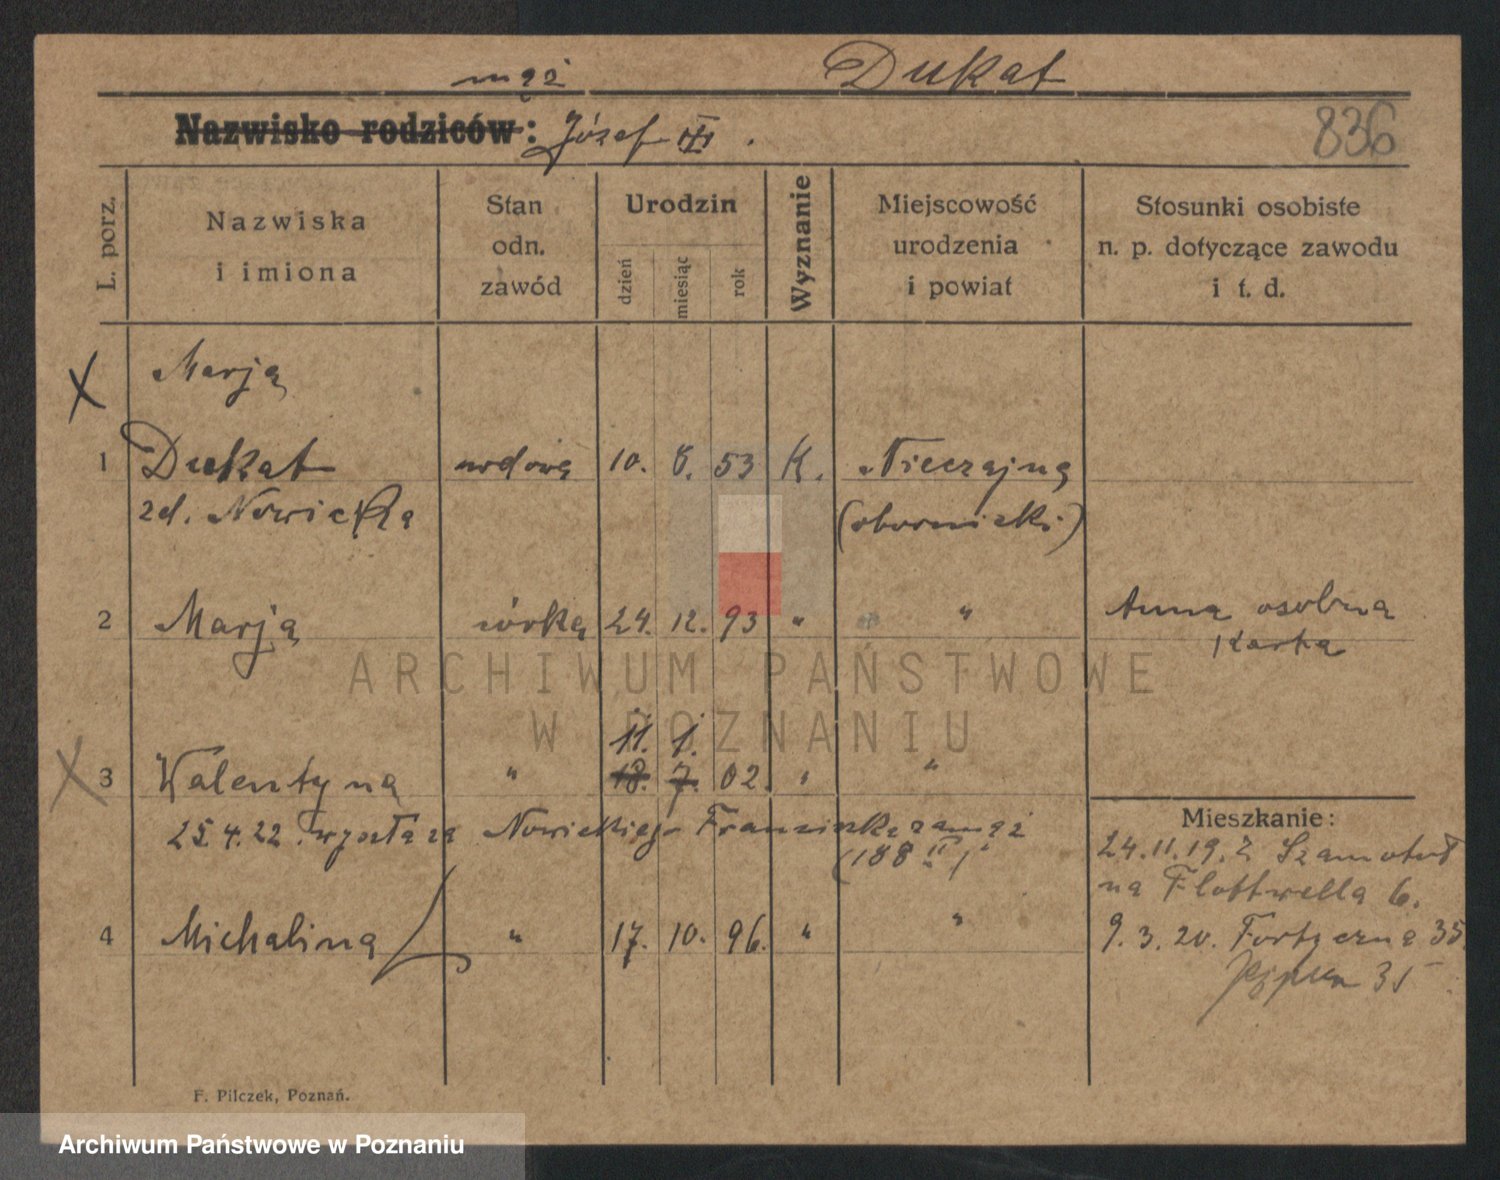 mąż Dukat
Nazwisko rodziców: Józef III.
836
L. porz.
Nazwiska i imiona
Stan odn. zawód
Urodzin
dzień miesiąc rok
Wyznanie
Miejscowość urodzenia i powiat
Stosunki osobiste n. p. dotyczące zawodu i t. d.
X Marja
1 Dukat wdowa 10. 8. 53 K. Nieczajna
zd. Nowicka (obornicki)
2 Marja córka 24. 12. 93 " " Anna osobna
Karta
11. 1.
X 3 Walentyna " 18. 7. 02. " "
25.4.22. wyszła za Nowickiego Franciszka zamąż
(188 II)
Mieszkanie:
24.11.19. z Szamotuł
na Flottwella 6.
4 Michalina " 17. 10. 96. " " 9.3.20. Forteczna 35
35
F. Pilczek, Poznań.
ARCHIWUM PAŃSTWOWE
W POZNANIU
Archiwum Państwowe w Poznaniu